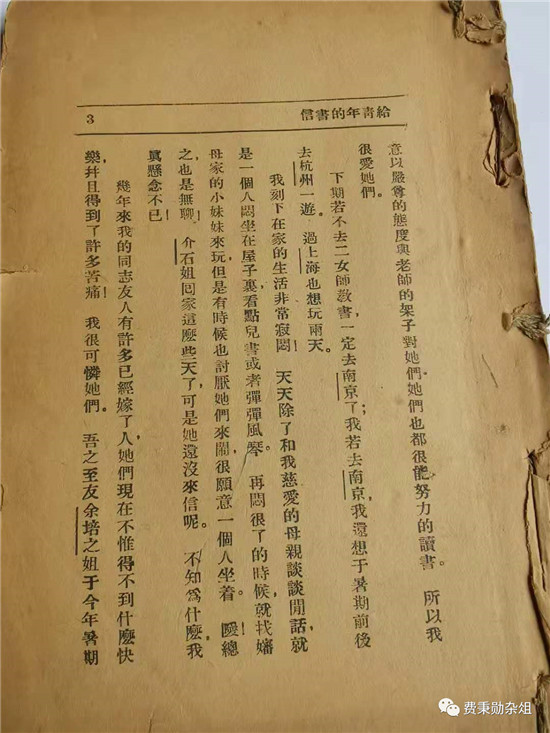 給青年的書信
3
意以嚴尊的態度與老師的架子對她們她們也都很能努力的讀書。 所以我
很愛她們。
下期若不去二女師教書,一定去南京了;我若去南京,我還想于暑期前後
去杭州一遊。 過上海也想玩兩天。
我刻下在家的生活非常寂悶! 天天除了和我慈愛的母親談談閒話,就
是一個人悶坐在屋子裏看點兒書或者彈彈風琴。 再悶很了的時候,就找嬸
母家的小妹妹來玩但是有時候也討厭她們來鬧,很願意一個人坐着。 噯總
之,也是無聊! 介石姐回家這麽些天了,可是她還沒來信呢。 不知爲什麽,我
眞懸念不已!
幾年來我的同志友人有許多已經嫁了人她們現在不惟得不到什麽快
樂,幷且得到了許多苦痛! 我很可憐她們。 吾之至友余培之姐于今年暑期
费秉勋杂俎